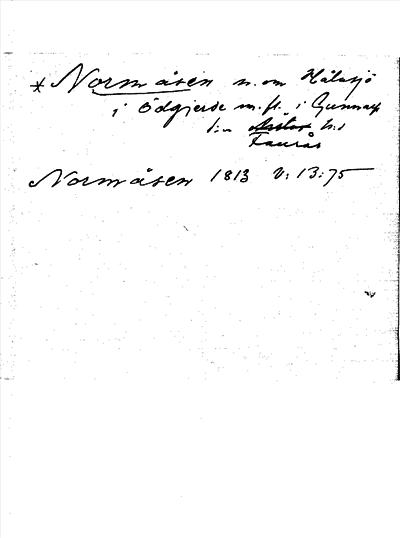 * Normåsen n. om Hålsjö
i Ödgjerde m. fl. i Gunnarp
s:n h:d
Faurås
Normåsen 1813 V: 13: 75